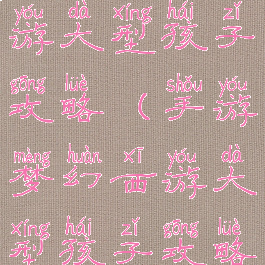 yóu dà xíng hái zǐ
游大型孩子
gōng lüè shǒu yóu
攻略（手游
mèng huàn xī yóu dà
梦幻西游大
xíng hái zǐ gōng lüè
型孩子攻略